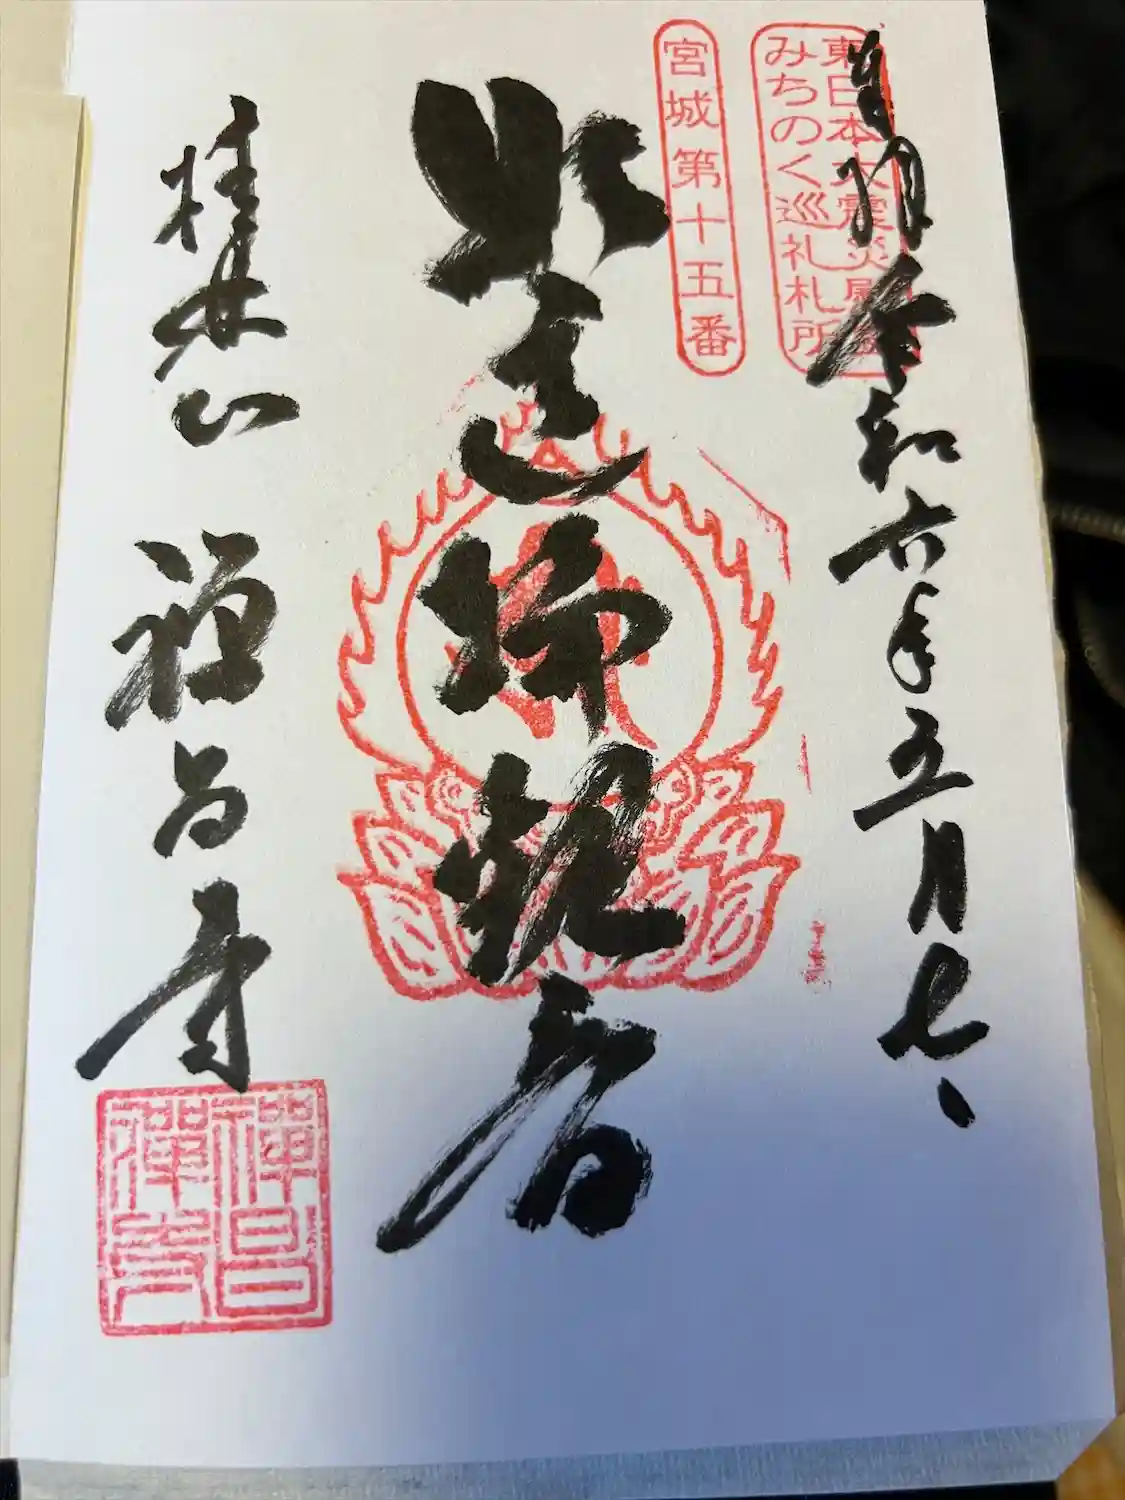 奉拝 令和六年五月七日
東日本大震災慰霊
みちのく巡礼札所
宮城第十五番
観音
桂林山 禅昌寺
禪昌
禪寺